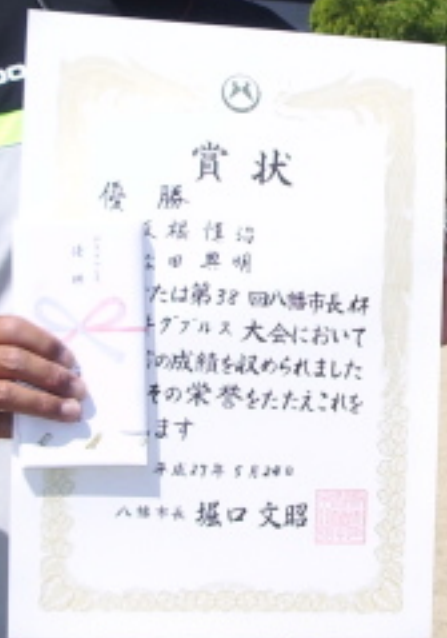 賞状
優勝
根 恒治
田 典明
たは第38回八幡市長杯
ダブルス 大会において
の成績を収められました
その栄誉をたたえこれを
ます
平成27年5月24日
八幡市長 堀口文昭
優勝